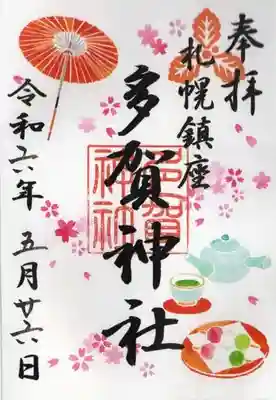 奉拝
札幌鎮座
多賀神社
多賀
神社
令和六年 五月廿六日